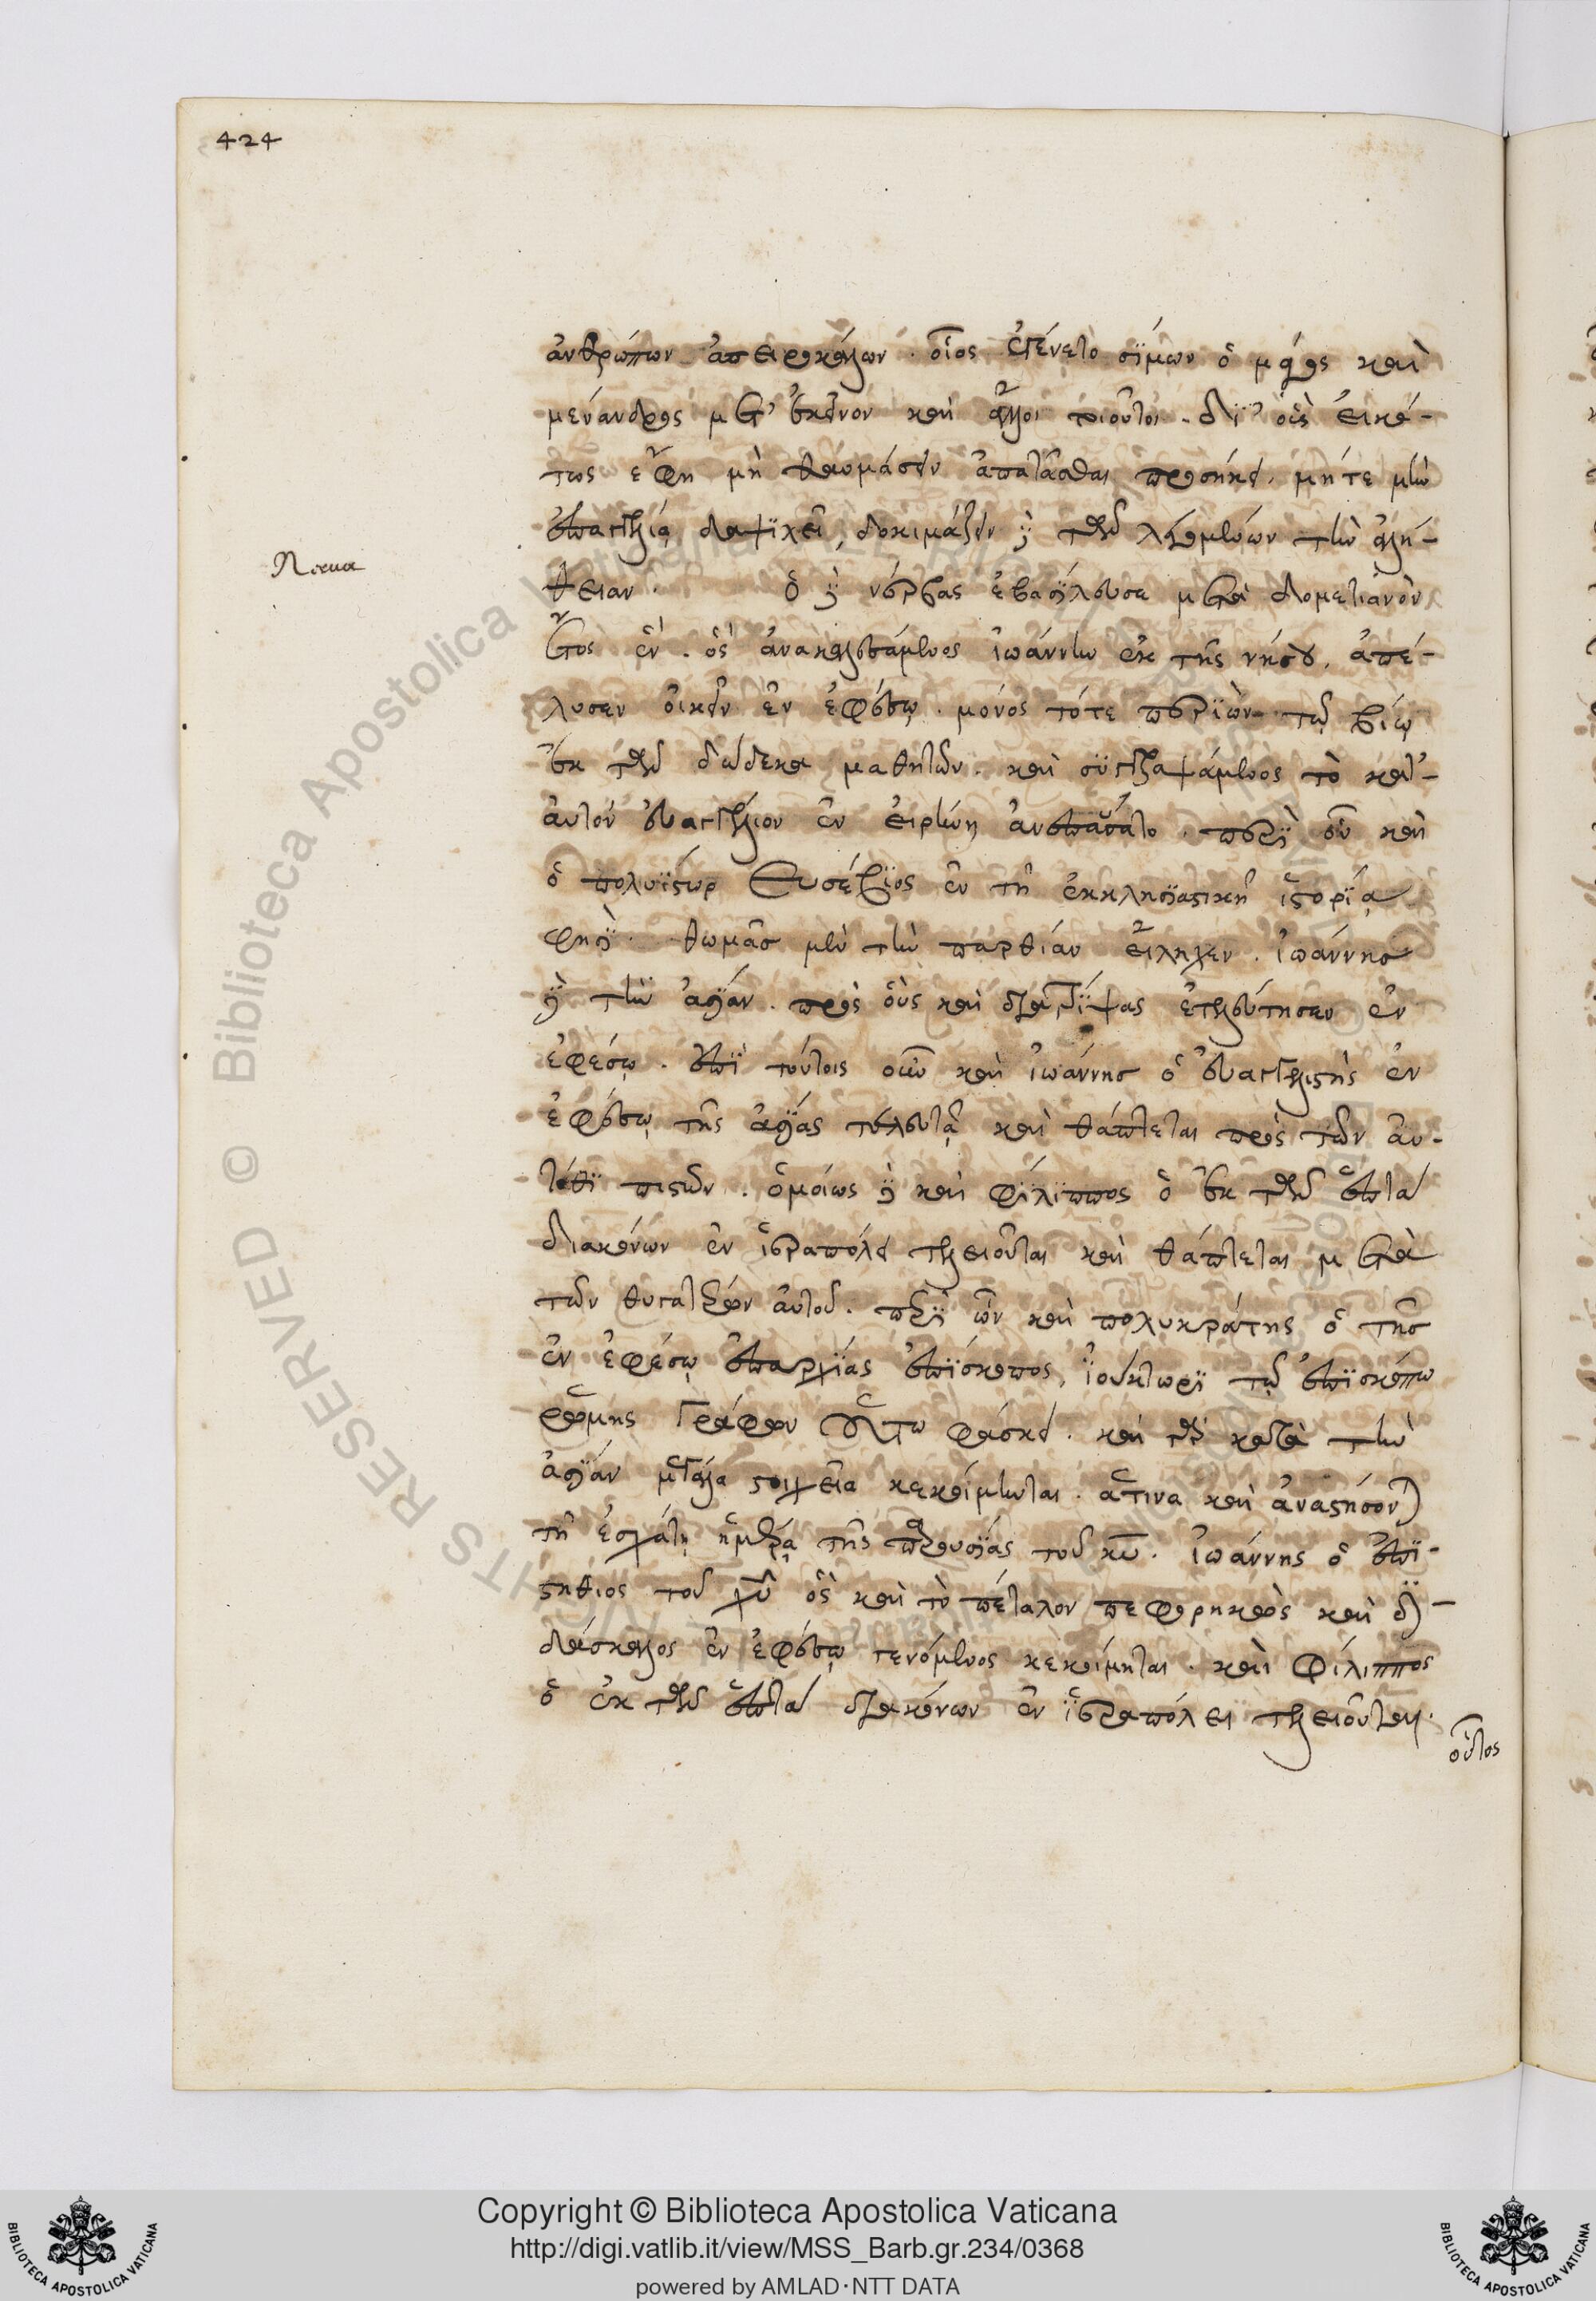 424
ἀνθρώπων ἀπειροκάλων. οἷος ἐγένετο σίμων ὁ μάγος καὶ
μένανδρος μετ' ἐκεῖνον καὶ ἄλλοι τοιοῦτοι. δι' οὓς εἰκό-
τως ἔφη μὴ θαυμάσειν ἀπατᾶσθαι προσήκει. μήτε μὴν
ἐπαγγελίᾳ
δοκιμάζειν δὲ τῶν λεγομένων τὴν ἀλή-
θειαν. ὁ δὲ νέρβας ἐβασίλευσε μετὰ δομετιανὸν
ἔτος ἕν. ὃς ἀνακαλεσάμενος ἰωάννην ἐκ τῆς νήσου, ἀπέ-
λυσεν οἰκεῖν ἐν ἐφέσῳ. μόνος τότε περιὼν τῷ βίῳ
ἐκ τῶν δώδεκα μαθητῶν. καὶ συγγραψάμενος τὸ κατ'
αὐτὸν εὐαγγέλιον ἐν εἰρήνῃ ἀνεπαύσατο. περὶ οὗ καὶ
ὁ πολυΐστωρ Εὐσέβιος ἐν τῇ ἐκκλησιαστικῇ ἱστορίᾳ
φησί. θωμᾶς μὲν τὴν παρθίαν εἴληχεν. ἰωάννης
δὲ τὴν ἀσίαν. πρὸς οὓς καὶ διατρίψας ἐτελεύτησεν ἐν
ἐφέσῳ. ἐπὶ τούτοις οὖν καὶ ἰωάννης ὁ εὐαγγελιστὴς ἐν
ἐφέσῳ τῆς ἀσίας τελευτᾷ καὶ θάπτεται πρὸς τῶν αὐ-
τόθι πιστῶν. ὁμοίως δὲ καὶ φίλιππος ὁ ἐκ τῶν ἑπτὰ
διακόνων ἐν ἱεραπόλει τελειοῦται καὶ θάπτεται μετὰ
τῶν θυγατέρων αὐτοῦ. περὶ ὧν καὶ πολυκράτης ὁ τῆς
ἐν ἐφέσῳ ἐπαρχίας ἐπίσκοπος, ἰούκτωρι τῷ ἐπισκόπῳ
ῥώμης γράφων οὕτω φάσκει. καὶ τὰ κατὰ τὴν
ἀσίαν μεγάλα στοιχεῖα κεκοίμηνται. ἅτινα καὶ ἀναστήσονται
τῇ ἐσχάτῃ ἡμέρᾳ τῆς παρουσίας τοῦ κυ. ἰωάννης ὁ ἐπι-
στήθιος τοῦ χυ ὃς καὶ τὸ πέταλον πεφορηκὼς καὶ δι-
δάσκαλος ἐν ἐφέσῳ γενόμενος κεκοίμηται. καὶ φίλιππος
ὁ ἐκ τῶν ἑπτὰ διακόνων ἐν ἱεραπόλει τελειοῦται.
οὗτος
Copyright © Biblioteca Apostolica Vaticana
http://digi.vatlib.it/view/MSS_Barb.gr.234/0368
powered by AMLAD·NTT DATA
BIBLIOTECA APOSTOLICA VATICANA
BIBLIOTECA APOSTOLICA VATICANA